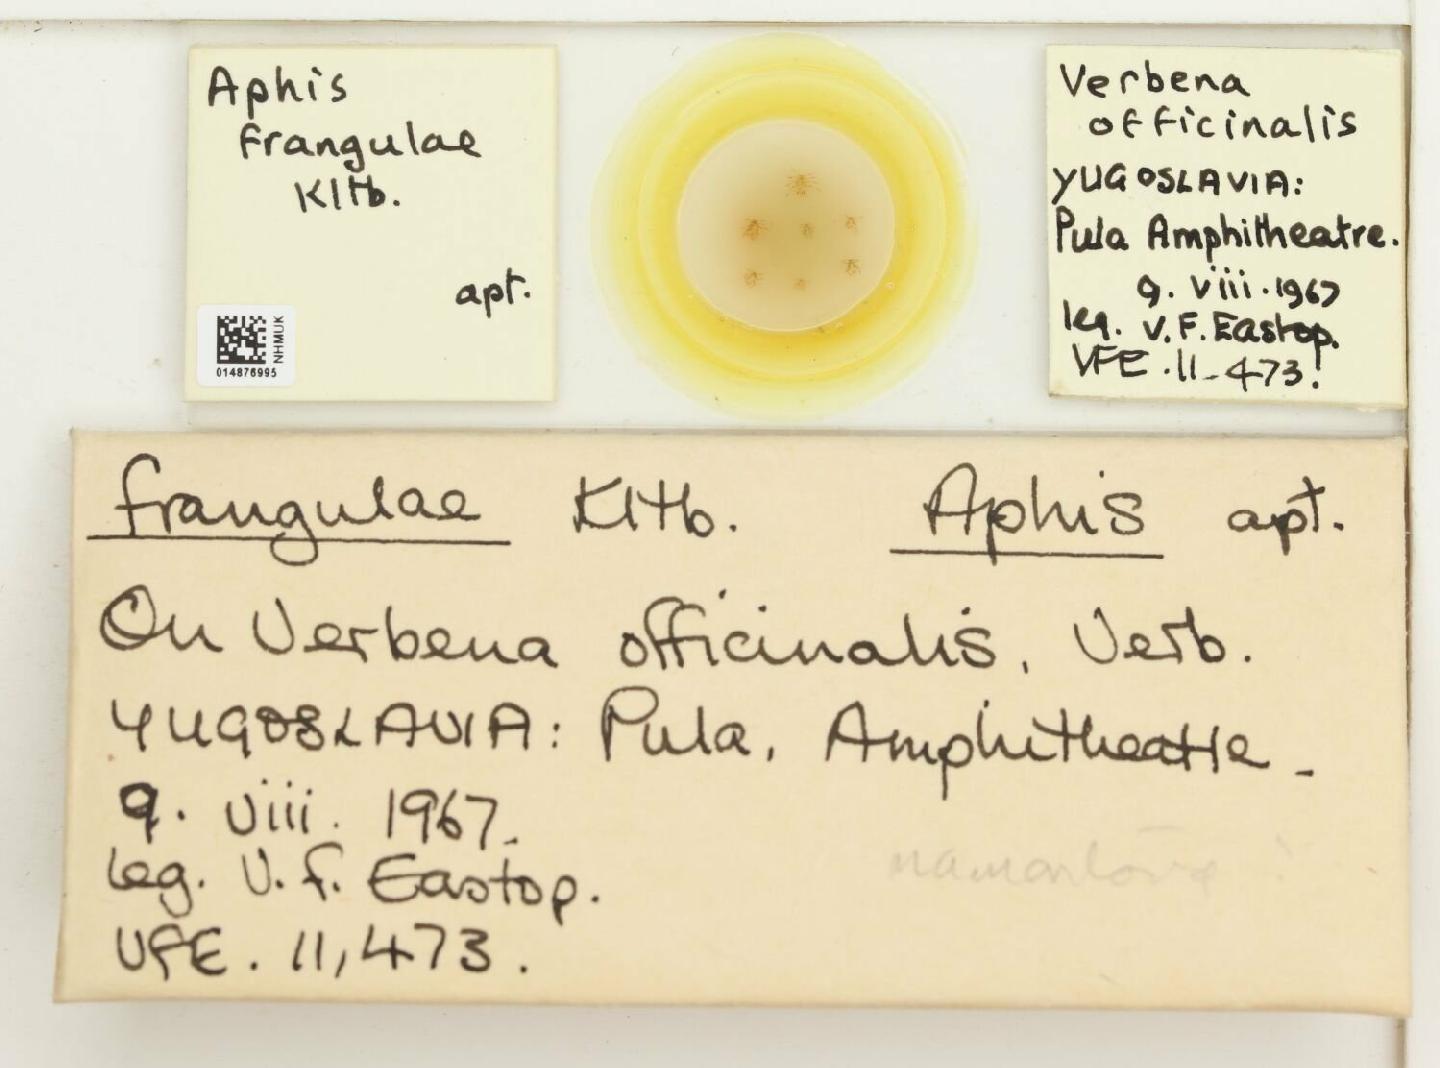 Aphis
frangulae
Kltb.
apt.
NHMUK
014876995
Verbena
officinalis
YUGOSLAVIA:
Pula Amphitheatre.
9. viii. 1967
leg. V. F. Eastop.
VFE. 11-473.
frangulae Kltb. Aphis apt.
On Verbena officinalis, Verb.
YUGOSLAVIA: Pula, Amphitheatre.
9. viii. 1967.
leg. V. F. Eastop.
VFE. 11,473.